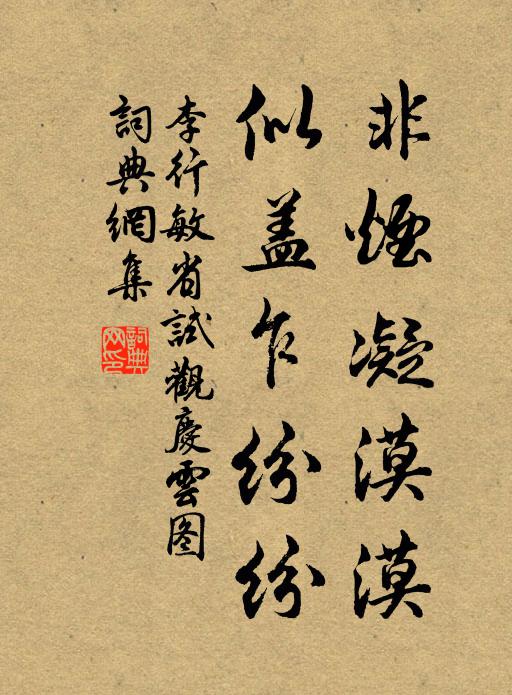 非煙凝漠漠
似蓋乍紛紛
李行敏省試觀慶雲图
詞典網集
詞典网印